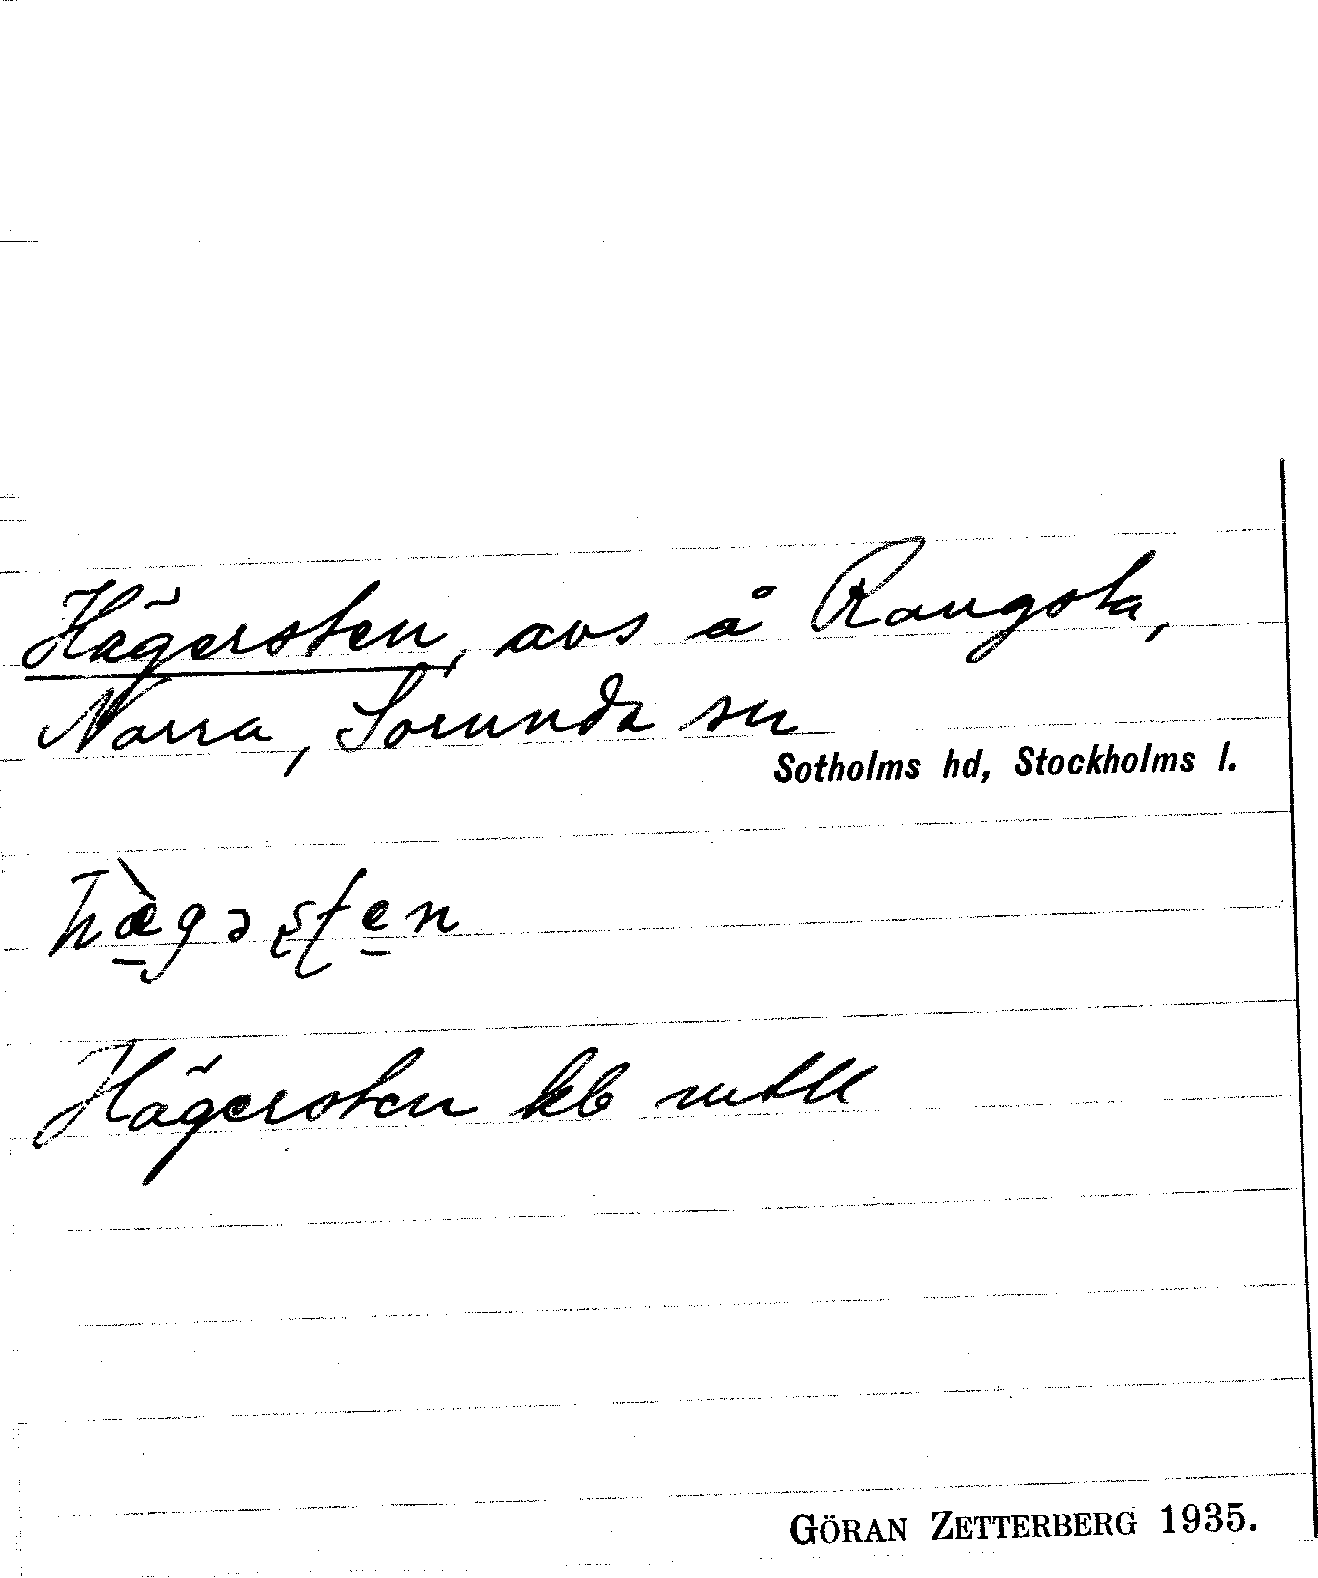 Hägersten, avs å Rangsta,
Norra, Sorunda sn
Sotholms hd, Stockholms l.
hæ̠̀gəʂʈe̠n
Hägersten kb mtll
GÖRAN ZETTERBERG 1935.